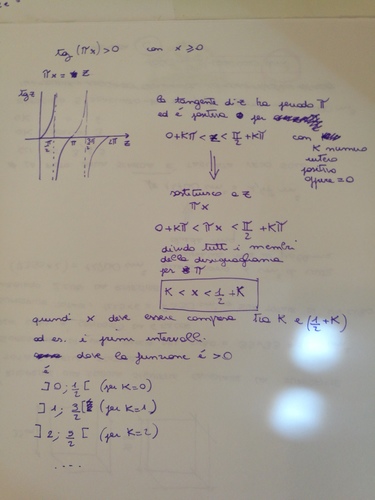 tg (πx) > 0 con x ≥ 0
πx = z
tg z
π/2 π 3π/2 2π z
la tangente di z ha periodo π
ed è positiva per
0+Kπ < z < π/2 + Kπ con
K numero
intero
positivo
oppure = 0
sostituisco a z
πx
0+Kπ < πx < π/2 + Kπ
divido tutti i membri
della disuguaglianza
per π
K < x < 1/2 + K
quindi x deve essere compreso tra K e (1/2 + K)
ad es. i primi intervalli
dove la funzione é > 0
é
]0; 1/2[ (per K=0)
]1; 3/2[ (per K=1)
]2; 5/2[ (per K=2)
....